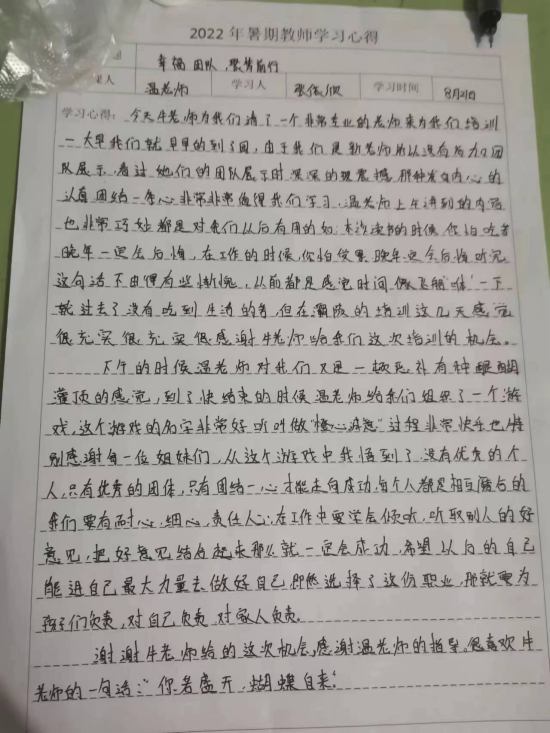 2022年暑期教师学习心得
题 幸福团队,聚势前行
课人 温老师 学习人 张依 学习时间 8月21日
学习心得: 今天牛老师为我们请了一个非常专业的老师来为我们培训
一大早我们就早早的到了园,由于我们是新老师所以没有参加团
队展示,看过她们的团队展示时深深的被震撼,那种发自内心的
认真团结一条心非常非常值得我们学习,温老师上午讲到的内容
也非常巧妙都是对我们以后有用的如:本次读书的时候你怕吃苦
晚年一定会后悔,在工作的时候,你怕付累晚年定会后悔听完
这句话下由得有些惭愧,从前都是感觉时间像飞机"唯"一下
就过去了没有吃到生活的苦,但在蒲公的培训这几天感觉
很充实很充实很感谢牛老师给我们这次培训的机会。
下午的时候温老师对我们又是一顿恶补有种醍醐
灌顶的感觉,到了快结束的时候温老师给我们组织了一个游
戏,这个游戏的名字非常好听叫做"核心浪花"过程非常快乐也特
别感谢每一位姐妹们,从这个游戏中我悟到了没有优秀的个
人,只有优秀的团体,只有团结一心才能走向成功,每个人都是相互
我们要有耐心,细心,责任心,在工作中要学会倾听,听取别人的好
意见,把好意见结合起来那么就一定会成功,希望以后的自己
能进自己最大力量去做好自己即然选择了这份职业,那就要为
孩子们负责,对自己负责,对家人负责。
谢谢牛老师给的这次机会,感谢温老师的指导。很喜欢牛
老师的一句话:"你若盛开,蝴蝶自来"